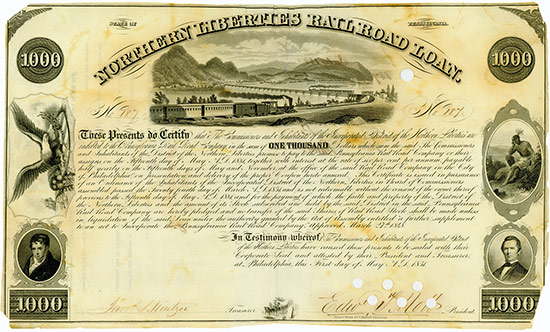 STATE OF PENNSYLVANIA.
NORTHERN LIBERTIES RAIL ROAD LOAN.
1000 1000
No. 787. No. 787.
These Presents do Certify that The Commissioners and Inhabitants of the Incorporated District of the Northern Liberties are
indebted to Company in the sum of ONE THOUSAND Dollars which sum the said The Commissioners
and Inhabitants of the Northern Liberties, promise to pay
assigns on the Fifteenth day of May A.D. 1881, together with interest at the rate of six per cent per annum, payable
half yearly on the Fifteenth days of May and November, at the office of the said Rail Road Company in the City
of Philadelphia on presentation and delivery of the proper Coupon hereto annexed. This Certificate is issued in pursuance
of an Ordinance of the Commissioners of the Incorporated District of the Northern Liberties in Board of Commissioners
assembled, passed the fourth day of March A.D. 1851, and is not redeemable without the consent of the owner thereof
previous to the Fifteenth day of May A.D. 1881 and for the payment of which the faith and property of the District of
the Northern Liberties and the amount of Stock subscribed and held by said District in the Pennsylvania
Rail Road Company are hereby pledged and no transfer of the said Shares of Rail Road Stock shall be made unless
in liquidation of the said Loan under the authority granted by the Act of Assembly entitled a further supplement
to an act to Incorporate the Pennsylvania Rail Road Company, Approved March 27th 1848
In Testimony whereof The Commissioners and Inhabitants of the Incorporated District
of the Northern Liberties have caused these presents to be sealed with their
Corporate Seal and attested by their President and Treasurer,
at Philadelphia, this First day of May A.D. 1851
Treasurer President
1000 1000